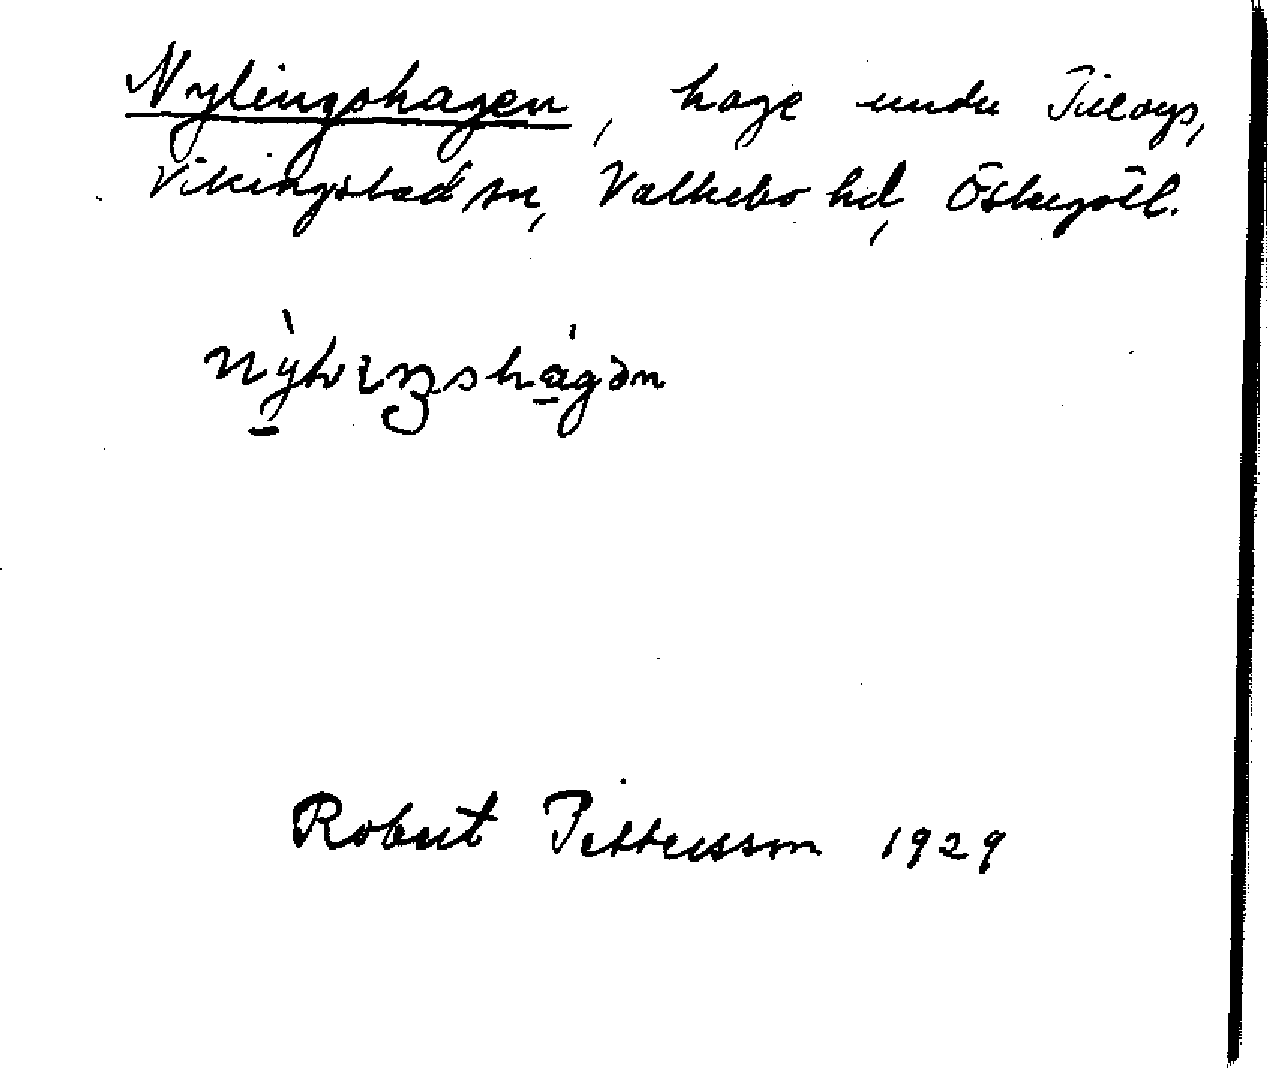 Nylingshagen, hage under
Vikingstad sn, Valkebo hd, Östergötl.
Robert Pettersson 1929